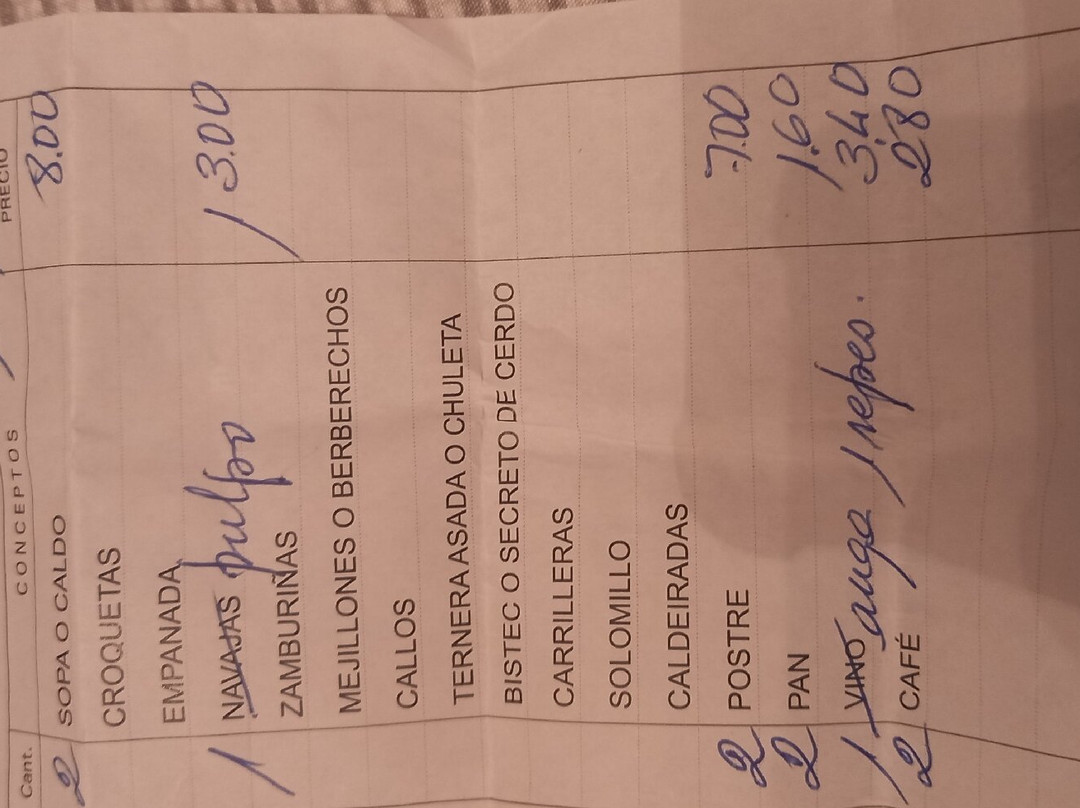 Cant. CONCEPTOS PRECIO
2 SOPA O CALDO 8.00
CROQUETAS
EMPANADA
1 NAVAJAS pulpo 13.00
ZAMBURIÑAS
MEJILLONES O BERBERECHOS
CALLOS
TERNERA ASADA O CHULETA
BISTEC O SECRETO DE CERDO
CARRILLERAS
SOLOMILLO
CALDEIRADAS
2 POSTRE 7.00
2 PAN 1.60
1 VINO auga 1 nepes. 3.40
2 CAFÉ 2.80